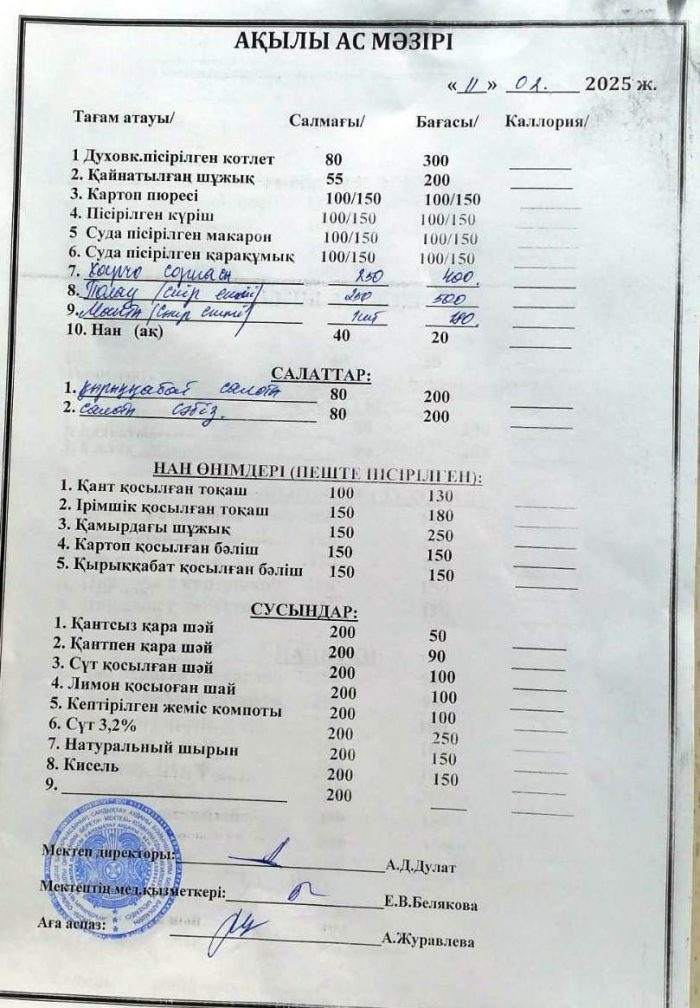 АҚЫЛЫ АС МӘЗІРІ
« 11 » 02. 2025 ж.
Тағам атауы/ Салмағы/ Бағасы/ Каллория/
1 Духовк.пісірілген котлет 80 300
2. Қайнатылған шұжық 55 200
3. Картоп пюресі 100/150 100/150
4. Пісірілген күріш 100/150 100/150
5 Суда пісірілген макарон 100/150 100/150
6. Суда пісірілген қарақұмық 100/150 100/150
7. Харчо сорпасы 250 400.
8. Палау /сиыр еті/ 250 500
9. /сиыр еті/ 1шт
10. Нан (ақ) 40 20
САЛАТТАР:
1. қырыққабат салаты 80 200
2. салаты сәбіз. 80 200
НАН ӨНІМДЕРІ (ПЕШТЕ ПІСІРІЛГЕН):
1. Қант қосылған тоқаш 100 130
2. Ірімшік қосылған тоқаш 150 180
3. Қамырдағы шұжық 150 250
4. Картоп қосылған бәліш 150 150
5. Қырыққабат қосылған бәліш 150 150
СУСЫНДАР:
1. Қантсыз қара шәй 200 50
2. Қантпен қара шәй 200 90
3. Сүт қосылған шәй 200 100
4. Лимон қосыоған шай 200 100
5. Кептірілген жеміс компоты 200 100
6. Сүт 3,2% 200 250
7. Натуральный шырын 200 150
8. Кисель 200 150
9. 200
Мектеп директоры: А.Д.Дулат
Мектептің мед.қызметкері: Е.В.Белякова
Аға аспаз: А.Журавлева